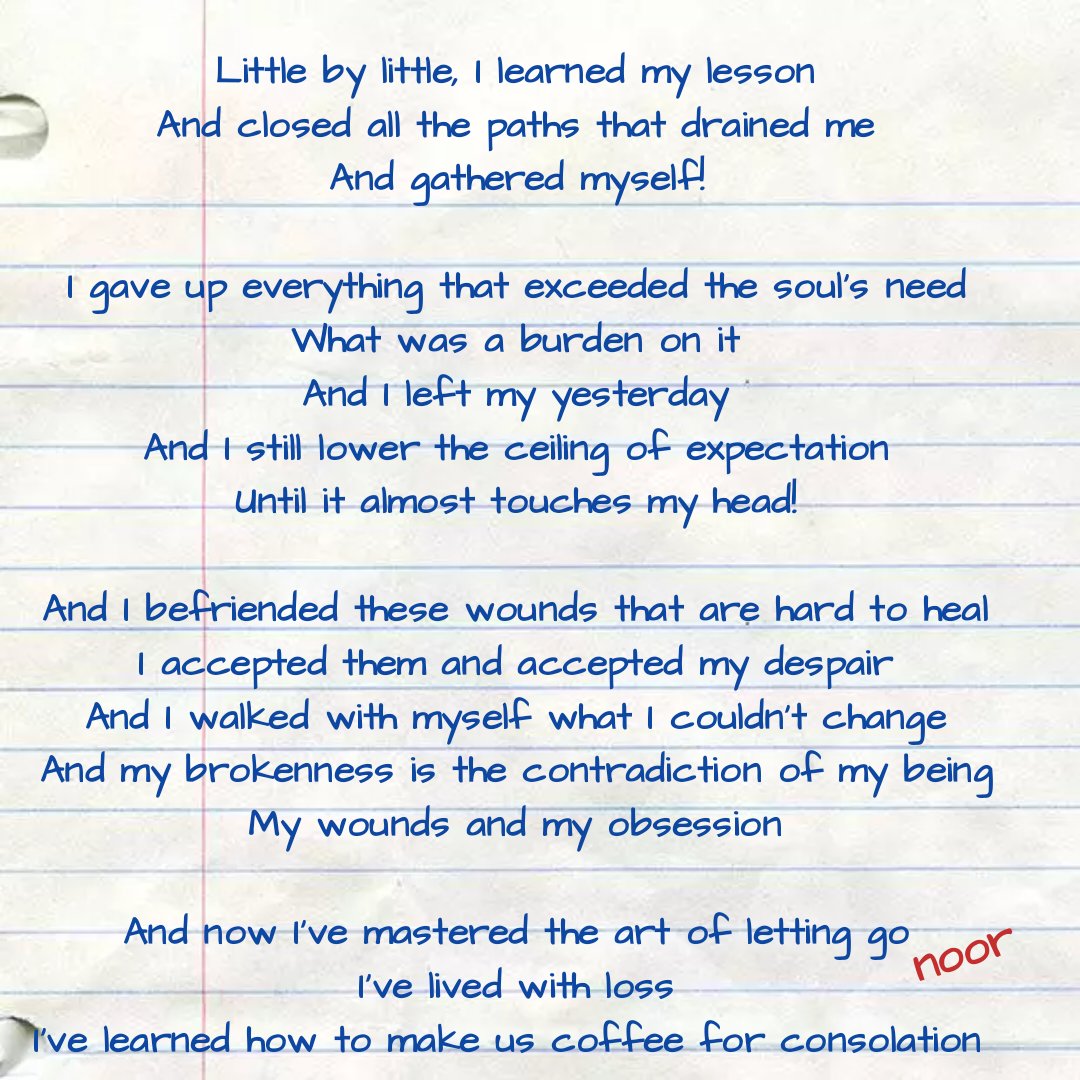 Little by little, I learned my lesson
And closed all the paths that drained me
And gathered myself!
I gave up everything that exceeded the soul's need
What was a burden on it
And I left my yesterday
And I still lower the ceiling of expectation
Until it almost touches my head!
And I befriended these wounds that are hard to heal
I accepted them and accepted my despair
And I walked with myself what I couldn't change
And my brokenness is the contradiction of my being
My wounds and my obsession
And now I've mastered the art of letting go
noor
I've lived with loss
I've learned how to make us coffee for consolation